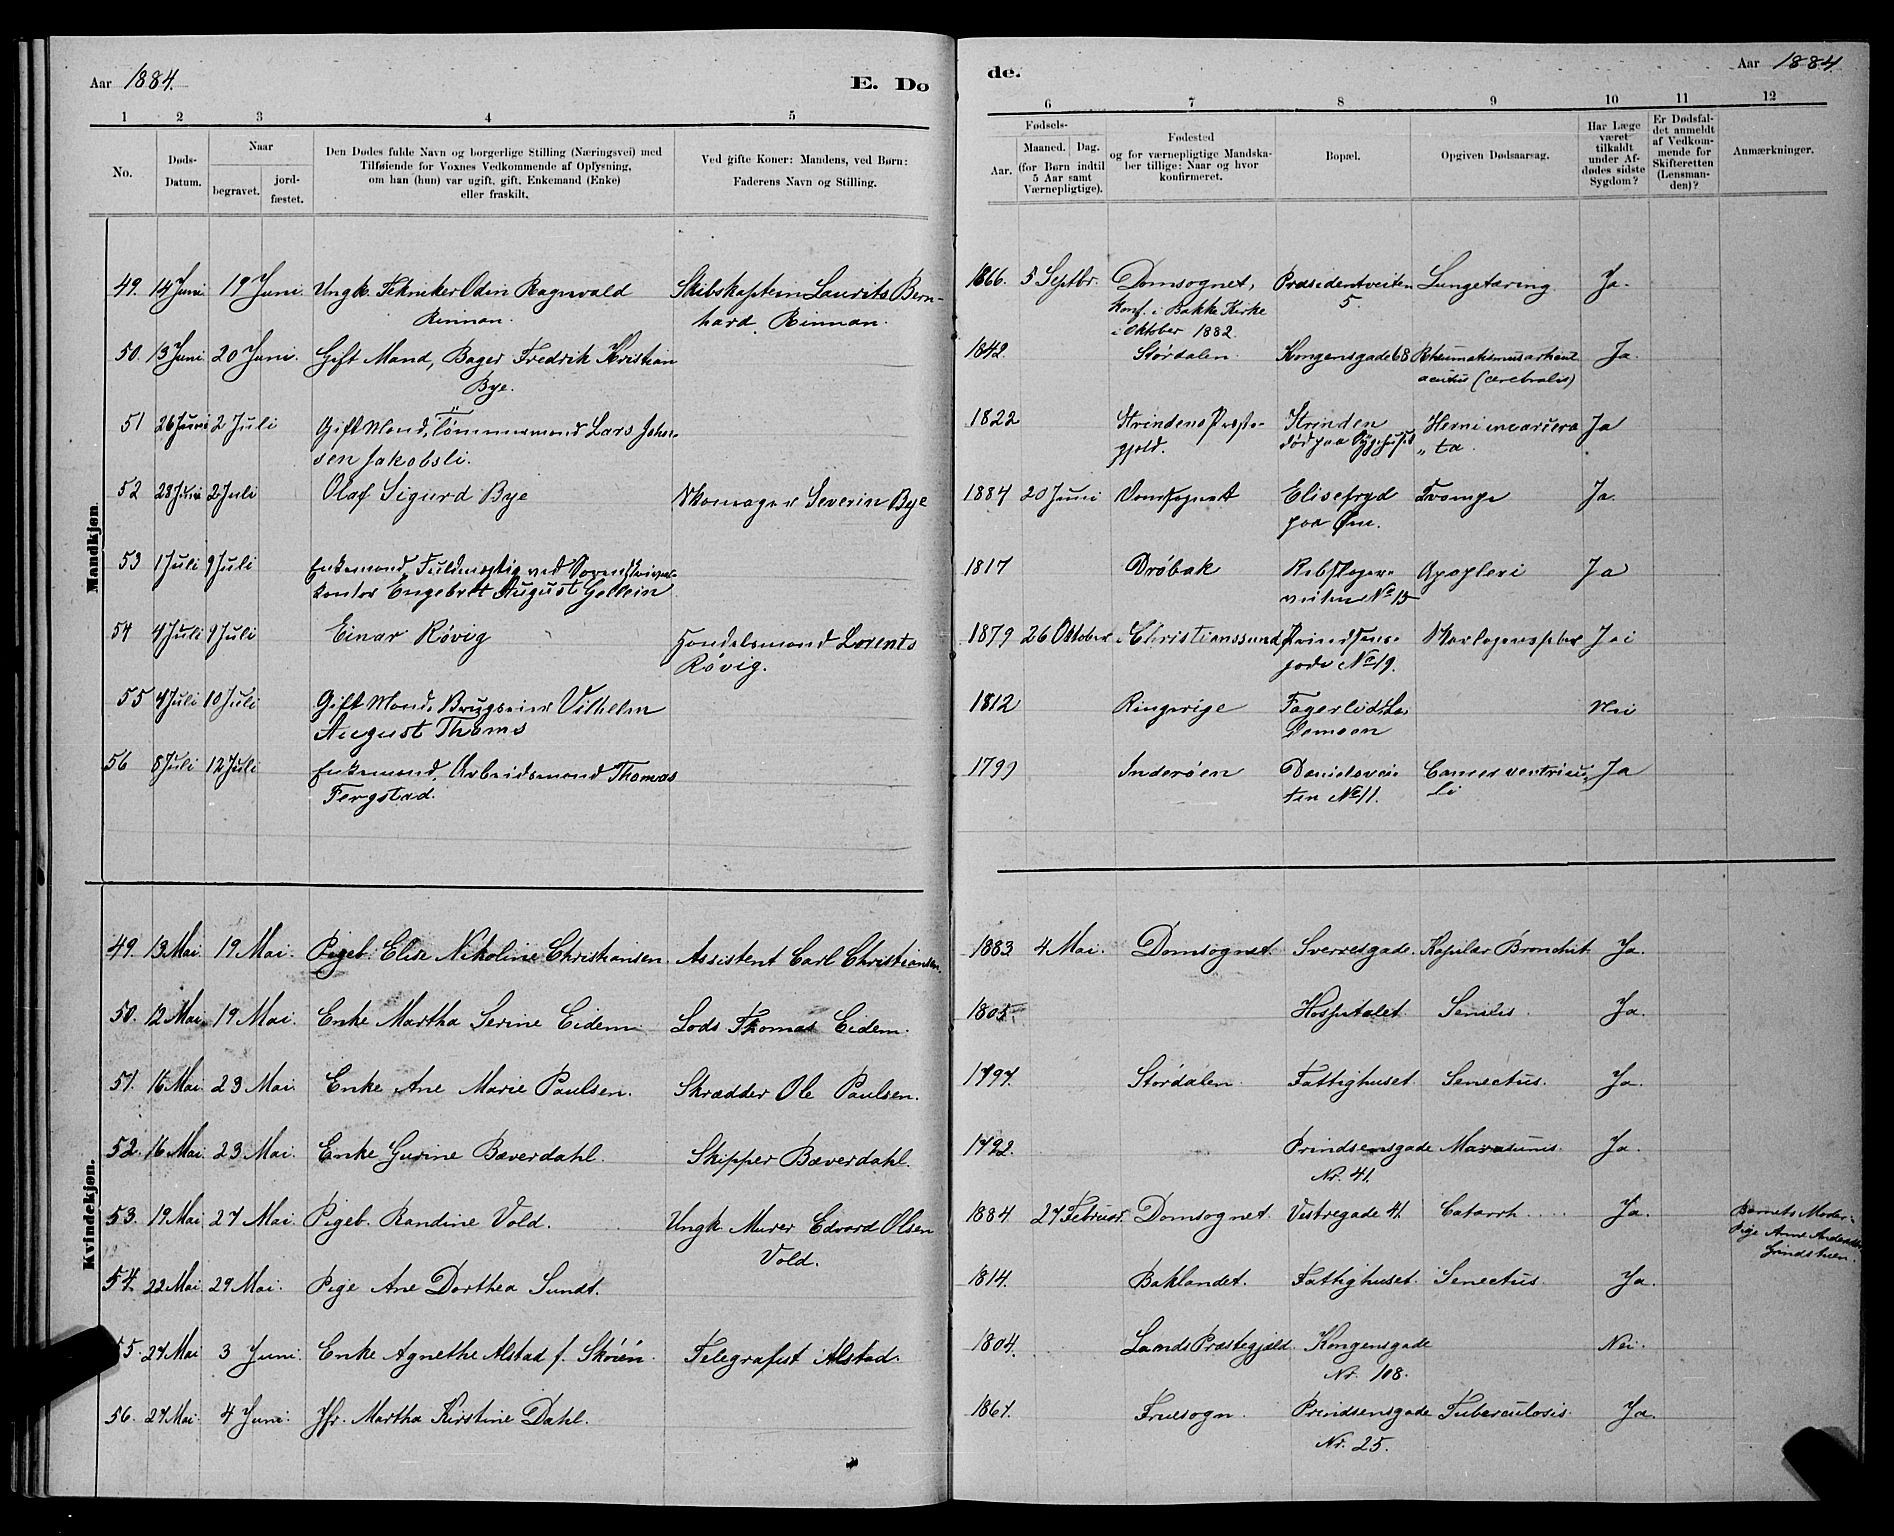 Aar 1884. E. Do
1 2 3 4 5
No. Døds-Datum. Naar begravet. jordfæstet. Den Dødes fulde Navn og borgerlige Stilling (Næringsvei) med
Tilføiende for Voxnes Vedkommende af Oplysning,
om han (hun) var ugift, gift, Enkemand (Enke)
eller fraskilt.
Ved gifte Koner: Mandens, ved Børn:
Faderens Navn og Stilling.
Mandkjøn.
49. 14 Juni 19 Juni. Ungk. Tekniker Odin Ragnvald Skibskaptein Laurits Bern-
Rinnan. hard Rinnan.
50. 13 Juni 20 Juni. Gift Mand, Bager Fredrik Kristian
Bye.
51 26 Juni 2 Juli Gift Mand, Tömmermand Lars Johan-
sen Jakobsli.
52 28 Juni 2 Juli Olaf Sigurd Bye Skomager Severin Bye
53 1 Juli 9 Juli Enkemand, Fuldmægtig ved Sorenskriver-
kontor Engebret August Gellein
54 4 Juli 9 Juli Einar Róvig Handelsmand Lorents
Róvig.
55 4 Juli 10 Juli Gift Mand, Brugseier Vilhelm
August Thoms
56 8 Juli 12 Juli Enkemand, Arbeidsmand Thomas
Fergstad.
Kvindekjøn.
49. 13 Mai 19 Mai. Pigeb. Elise Nikoline Christiansen. Assistent Carl Christiansen.
50. 12 Mai 19 Mai. Enke Martha Serine Eidem Lods Thomas Eidem.
51. 16 Mai 23 Mai Enke Ane Marie Paulsen. Skrædder Ole Paulsen.
52. 16 Mai 23 Mai. Enke Gurine Bæverdahl. Skipper Bæverdahl.
53. 19 Mai 27 Mai. Pigeb. Randine Vold. Ungk Murer Edvard Olsen
Vold.
54. 22 Mai 29 Mai. Pige Ane Dorthea Sundt.
55. 27 Mai 3 Juni. Enke Agnethe Alstad f. Skóién. Telegrafist Alstad.
56. 27 Mai. 4 Juni. Jfr. Martha Kirstine Dahl.
de. Aar 1884
6 7 8 9 10 11 12
Fødsels-
Aar. Maaned. Dag.
(for Børn indtil
5 Aar samt
Værnepligtige).
Fødested
og for værnepligtige Mandska-
ber tillige: Naar og hvor
konfirmeret.
Bopæl.
Opgiven Dødsaarsag.
Har Læge
været
tilkaldt
under Af-
dødes sidste
Sygdom?
Er Dødsfal-
det anmeldt
af Vedkom-
mende for
Skifteretten
(Lensman-
den)?
Anmærkninger.
1866. 5 Septbr. Domsognet, Præsidentveiten Lungetæring Ja.
Konf. i Bakke Kirke 5.
i Oktober 1882.
1842. Stórdalen. Kongensgade 68 Rheumatismus articul Ja
acutus (cerebralis)
1822 Strindens Præste- Strinden Herni incarcera Ja
gjeld. død paa Sygehuset „ ta
1884 20 Juni Domsognet Elisefryd Trompe Ja
paa Øen.
1817 Dróbak Rebslager- Apoplexi Ja
veiten No 15
1879 26 Oktober Christianssund Prindsens- Skarlagensfeber Ja
gade No 19.
1812 Ringerige Fagerlid, La- Nei
demoen
1799 Inderóen Danielsvei- Cancer ventricu- Ja
ten No 11. li
1883 4 Mai. Domsognet. Sverresgade. Kapilær Bronchit Ja.
1805 Hospitalet Senilis. Ja.
1797. Stórdalen. Fattighuset. Senectus. Ja.
1792. Prindsensgade Marasmus. Ja.
Nr. 41.
1884. 27 Februar. Domsognet. Vestregade 41. Catarrh. Ja. Barnets Moder-
Pige Ane
1814. Baklandet. Fattighuset. Senectus. Ja.
1804. Lands Præstegjeld. Kongensgade Nei.
Nr. 108.
1867. Fruesogn. Prindsensgade Tuberculosis. Ja.
Nr. 25.